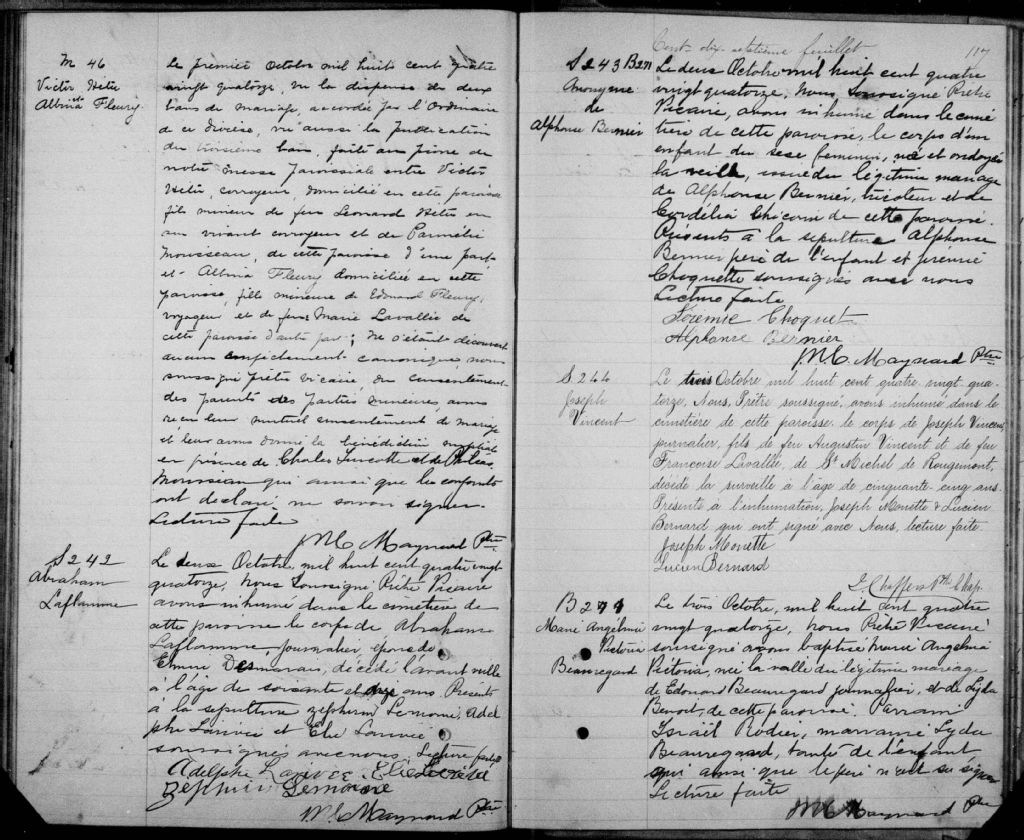 M 46
Victor Hétu
&
Albina Fleury
Le premier Octobre mil huit cent quatre
vingt quatorze, vu la dispense de deux
bans de mariage, accordée par l'Ordinaire
de ce diocèse, vu aussi la publication
du troisième ban, faite au prône de
notre messe paroissiale entre Victor
Hétu, corroyeur, domicilié en cette paroisse
fils mineur de feu Leonard Hétu en
son vivant corroyeur et de Parmélie
Mousseau, de cette paroisse d'une part
et Albina Fleury domiciliée en cette
paroisse, fille mineure de Edouard Fleury,
voyageur et de feue Marie Lavallée de
cette paroisse d'autre part; ne s'étant découvert
aucun empêchement canonique, nous
soussigné prêtre vicaire, du consentement
des parents des parties mineures, avons
reçu leur mutuel consentement de mariage
et leur avons donné la bénédiction nuptiale
en présence de Charles Turcotte et de
Mousseau qui ainsi que les conjoints
ont déclaré ne savoir signer.
Lecture faite
M C Maynard Ptre
S 242
Abraham
Laflamme
Le deux Octobre, mil huit cent quatre vingt
quatorze, Nous Soussigné Prêtre Vicaire
avons inhumé dans le cimetière de
cette paroisse le corps de Abraham
Laflamme, journalier, époux de
Desmarais, décédé l'avant veille
à l'âge de soixante et onze ans Présents
à la sépulture Zéphirin Lemoine, Adel
phe Larivée et Elie Larivée
soussignés avec nous, Lecture faite
Adelphe Larivee
Zephirin Lemoine
M C Maynard Ptre
Cent dix-septième feuillet
117
S 243 B271
Anonyme
de
Alphonse Bernier
Le deux Octobre mil huit cent quatre
vingt quatorze, Nous Soussigné Prêtre
Vicaire, avons inhumé dans le cime
tière de cette paroisse, le corps d'un
enfant du sexe feminin, né et ondoyé
la veille, issu du légitime mariage
de Alphonse Bernier, tricoteur et de
Cordélia Chicoine de cette paroisse.
Présents à la sépulture Alphonse
Bernier père de l'enfant et Jérémie
Choquette soussignés avec nous
Lecture faite
Jeremie Choquet
Alphonse Bernier
M C Maynard Ptre
S. 244
Joseph
Vincent
Le trois Octobre mil huit cent quatre vingt qua-
torze, Nous, Prêtre soussigné, avons inhumé dans le
cimetière de cette paroisse le corps de Joseph Vincent
journalier, fils de feu Augustin Vincent et de feu
Françoise Lavallée, de St Michel de Rougemont,
décédé la surveille à l'âge de cinquante cinq ans
Présents à l'inhumation, Joseph Monette & Lucien
Bernard qui ont signé avec Nous, lecture faite
Joseph Monette
Lucien Bernard
Chaffers Ptre Chap.
B 271
Marie Angelina
Victoria
Beauregard
Le trois Octobre, mil huit cent quatre
vingt quatorze, Nous Prêtre Vicaire
soussigné avons baptisé Marie Angelina
Victoria, née la veille du légitime mariage
de Edouard Beauregard journalier, et de Lyda
Benoit, de cette paroisse. Parrain
Israël Rodier, marraine Lyda
Beauregard, tante de l'enfant
qui ainsi que le père n'ont su signer
Lecture faite
M C Maynard Ptre